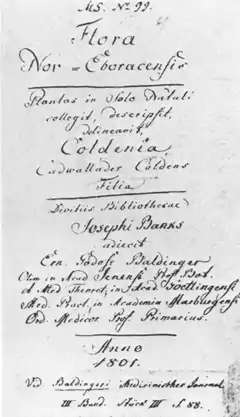 MS. No 99.
Flora
Nov = Eboracensis
Plantas in Solo Natali
collegit, descripsit,
delineavit,
Coldenia
Cadwallader Coldens
Filia
Divitiis Bibliothecae
Josephi Banks
adiecit
Ern. Godofr Baldinger
Olim in Acad Jenensi Prof. Bot.
A Med Theoret, in Acad Goettingensi
Med. Pract, in Academia Marburgensi
Ord. Medicor Prof. Primarius.
Anno
1801.
Vid Baldingers Medicinisches Journal
III Band. Stück III S. 88.